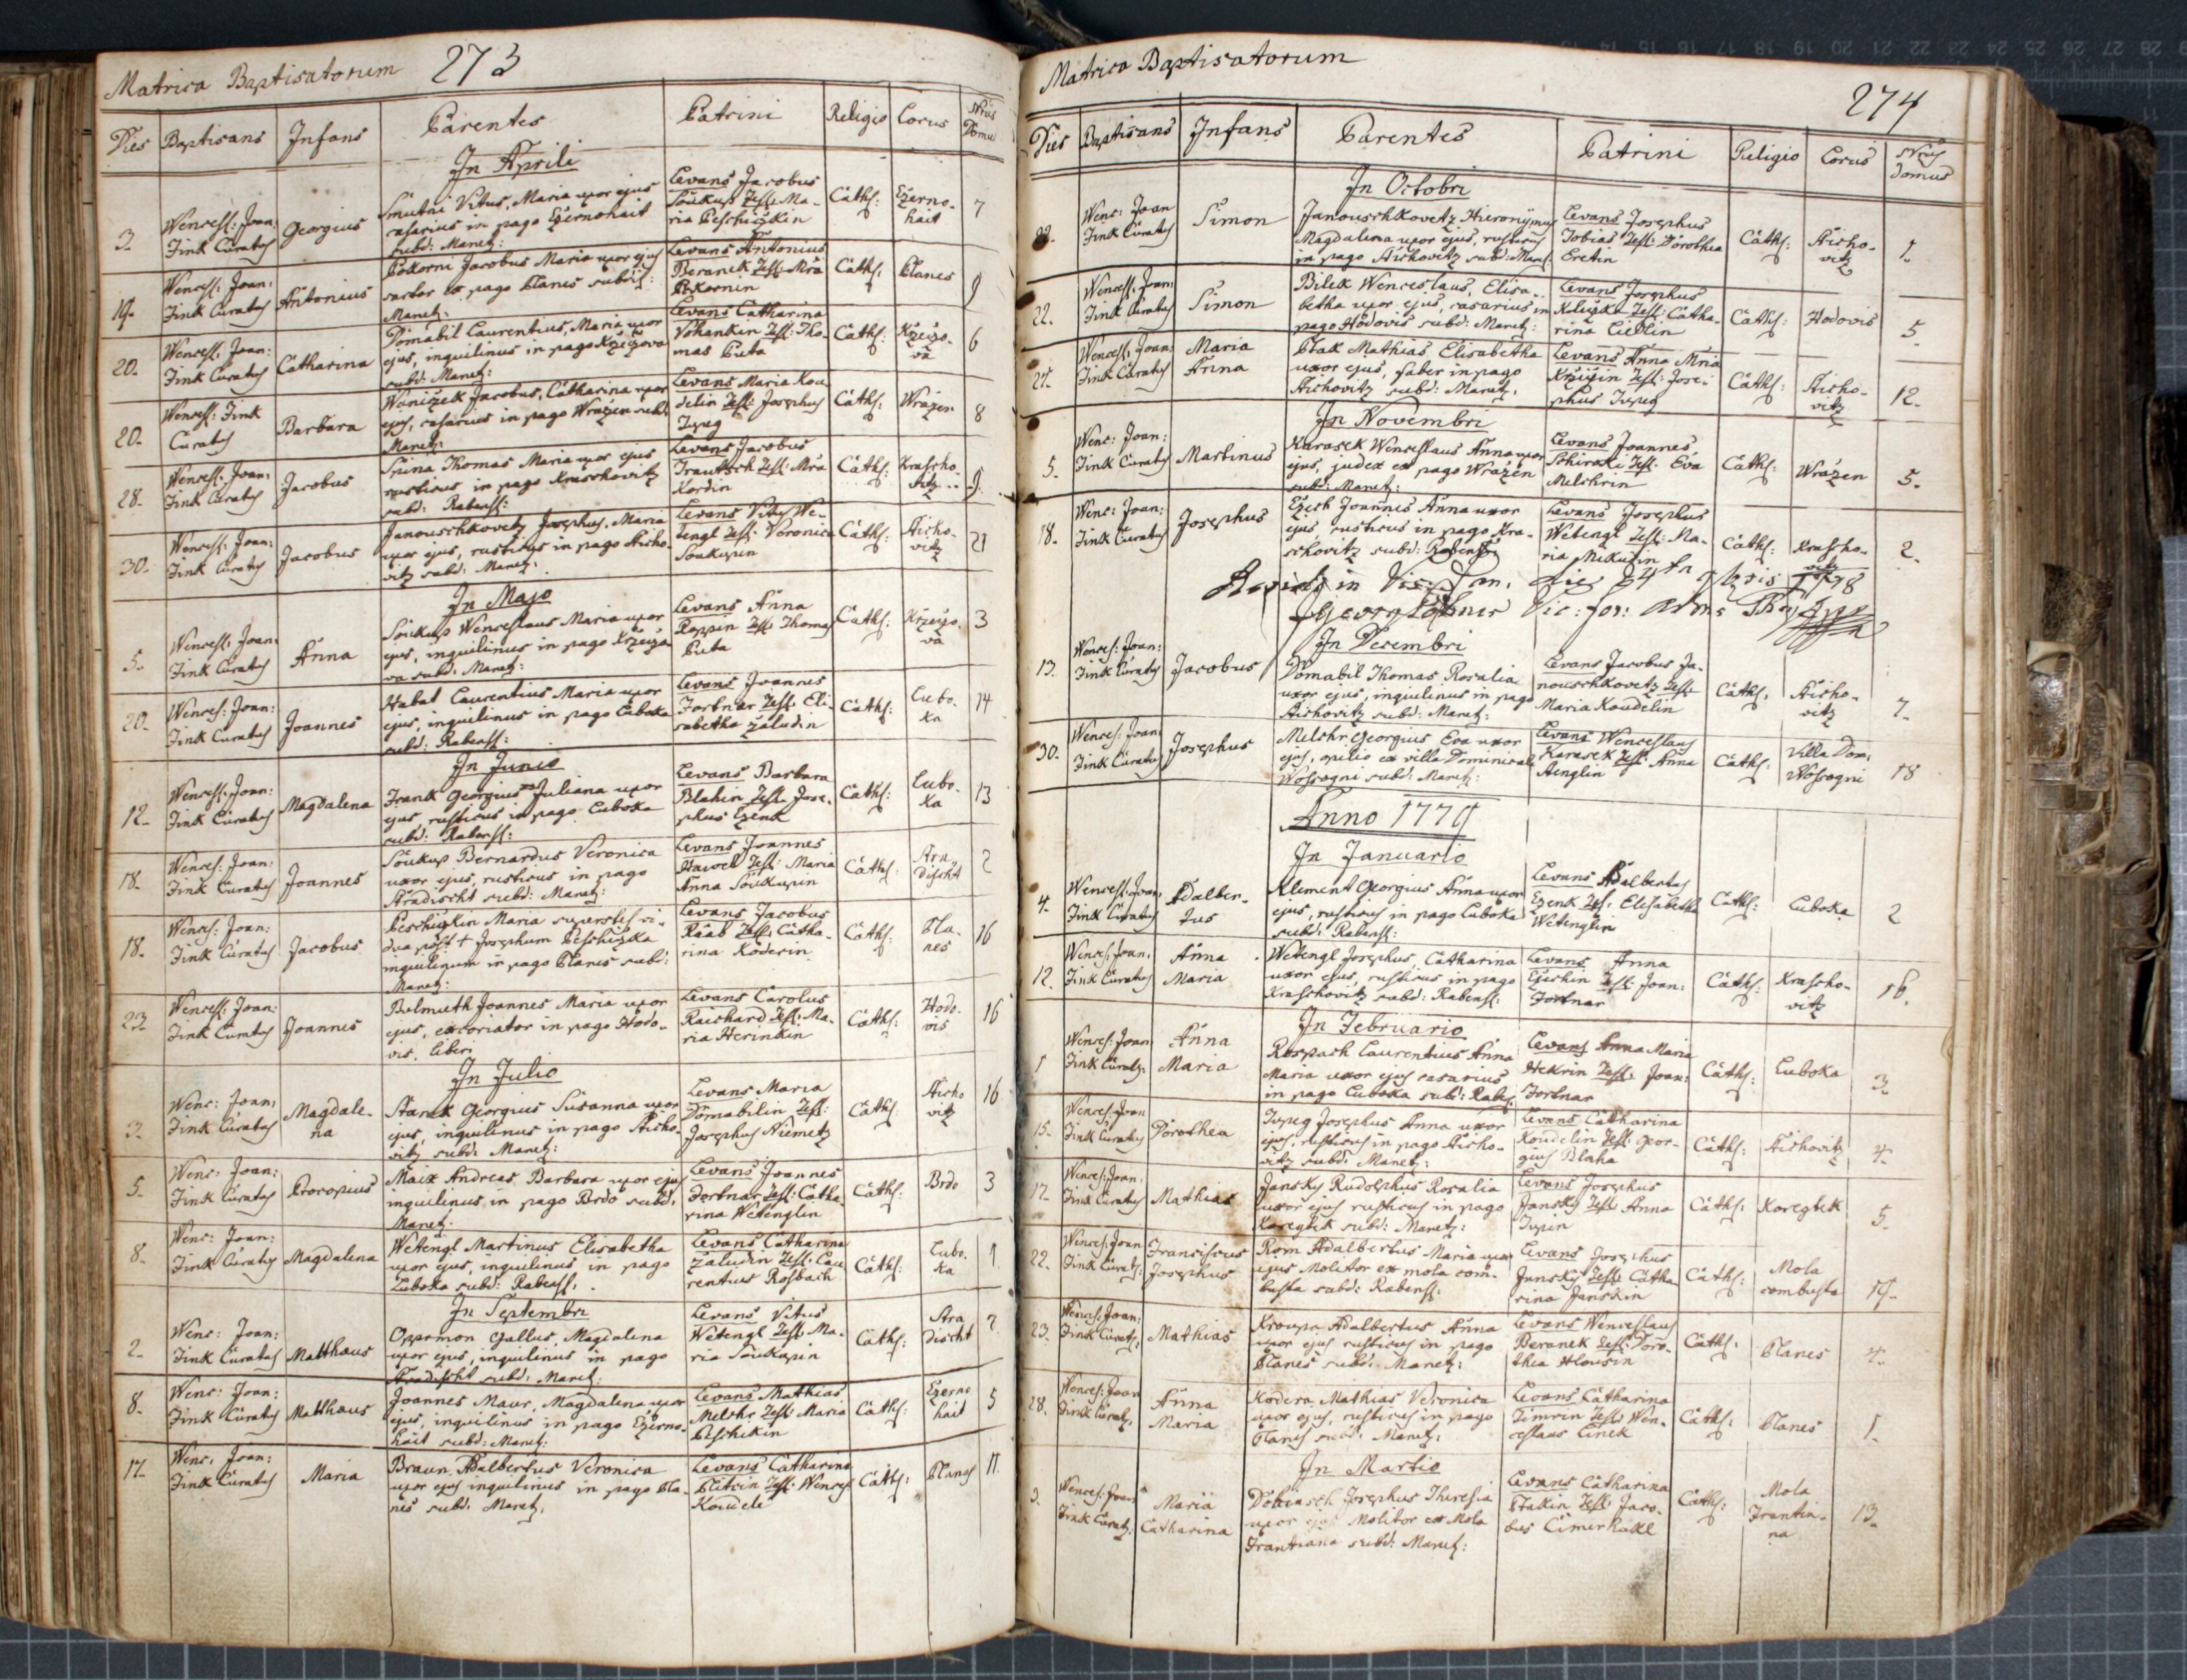 Matrica Baptisatorum 273
Dies Baptisans Infans Parentes Patrini Religio Locus Nrus Domus
In Aprili
3. Wencesl: Joan: Fink Curatus Georgius Smutni Vitus, Maria uxor ejus casarius in pago Czernohait subd: Manetz: Levans Jacobus Soukup Test: Maria Peschiczkin Cath: Czernohait 7
19. Wencesl: Joan: Fink Curatus Antonius Pokorni Jacobus Maria uxor ejus sartor ex pago Planes subdit: Manetz: Levans Antonius Beranek Test: Mra Pokornin Cath: Planes 9
20. Wencesl: Joan: Fink Curatus Catharina Domabil Laurentius, Maria uxor ejus, inquilinus in pago Krzeizova subd: Manetz: Levans Catharina Vokankin Test: Thomas Puta Cath: Krzeizova 6
20. Wencesl: Fink Curatus Barbara Waniczek Jacobus, Catharina uxor ejus, casarius in pago Wrazen subd: Manetz: Levans Maria Koudelin Test: Josephus Tupeg Cath: Wrazen 8
28. Wencesl: Joan: Fink Curatus Jacobus Thomas Maria uxor ejus rusticus in pago Kraschovitz subd: Rabenst: Levans Jacobus Test: Mra Kordin Cath: Kraschovitz 9.
30. Wencesl: Joan: Fink Curatus Jacobus Janouschkovetz Josephus, Maria uxor ejus, rusticus in pago Hichovitz subd: Manetz: Levans Vitus Wetengl Test: Veronica Soukupin Cath: Hichovitz 21
In Majo
5. Wencesl: Joan: Fink Curatus Anna Soukup Wenceslaus Maria uxor ejus, inquilinus in pago Krzeizova subd: Manetz: Levans Anna Roppin Test: Thomas Puta Cath: Krzeizova 3
20. Wences: Joan: Fink Curatus Joannes Habat Laurentius Maria uxor ejus, inquilinus in pago Luboka subd: Rabenst: Levans Joannes Fortnar Test: Elisabetha Zaludin Cath: Luboka 14
In Junio
12. Wencesl: Joan: Fink Curatus Magdalena Frank Georgius Juliana uxor ejus, rusticus in pago Luboka subd: Rabenst: Levans Barbara Blahin Test: Josephus Czenk Cath: Luboka 13
18. Wences: Joan: Fink Curatus Joannes Soukup Bernardus Veronica uxor ejus, rusticus in pago Hradischt subd: Manetz: Levans Joannes Hawel Test: Maria Anna Soukupin Cath: Hradischt 2
18. Wences: Joan: Fink Curatus Jacobus Peschizkin Maria superstes vidua post + Josephum Peschizka inquilinum in pago Planes subd: Manetz: Levans Jacobus Raab Test: Catharina Koderin Cath: Planes 16
23. Wencesl: Joan: Fink Curatus Joannes Bulmuth Joannes Maria uxor ejus, excoriator in pago Hodovis. Liberi Levans Carolus Raichard Test: Maria Herinkin Cath: Hodovis 16
In Julio
3. Wenc: Joan: Fink Curatus Magdalena Starek Georgius Susanna uxor ejus, inquilinus in pago Hichovitz subd: Manetz: Levans Maria Domabilin Test: Josephus Niemetz Cath: Hichovitz 16
5. Wenc: Joan: Fink Curatus Procopius Maix Andreas Barbara uxor ejus inquilinus in pago Brdo subd: Manetz: Levans Joannes Fortnar Test: Catharina Wetenglin Cath: Brdo 3
8. Wenc: Joan: Fink Curatus Magdalena Wetengl Martinus Elisabetha uxor ejus, inquilinus in pago Luboka subd: Rabenst: Levans Catharina Zaludin Test: Laurentius Rosbach Cath: Luboka 1
In Septembri
2. Wenc: Joan: Fink Curatus Matthaus Oppomon Gallus, Magdalena uxor ejus, inquilinus in pago Hradischt subd: Manetz: Levans Vitus Wetengl Test: Maria Soukupin Cath: Hradischt 7
8. Wenc: Joan: Fink Curatus Matthaus Joannes Maur, Magdalena uxor ejus, inquilinus in pago Czernohait subd: Manetz: Levans Mathias Melchr Test: Maria Peschekin Cath: Czernohait 5
17. Wenc: Joan: Fink Curatus Maria Braun Adalbertus Veronica uxor ejus inquilinus in pago Planes subd: Manetz: Levans Catharina Test: Wences Koudele Cath: Planes 11
Matrica Baptisatorum
274
Dies Baptisans Infans Parentes Patrini Religio Locus Nrus Domus
In Octobri
22. Wenc: Joan Fink Curatus Simon Janouschkovetz Hieronymus Magdalena uxor ejus, rusticus in pago Hichovitz subd: Manet: Levans Josephus Tobias, Test: Dorothea Cretin Cath: Hichovitz 1.
22. Wencesl: Joan: Fink Curatus Simon Bilek Wenceslaus, Elisabetha uxor ejus, casarius in pago Hodovis subd: Manetz: Levans Josephus Test: Catharina Cath: Hodovis 5.
27. Wencesl: Joan: Fink Curatus Maria Anna Ptak Mathias Elisabetha uxor ejus, faber in pago Hichovitz subd: Manetz: Levans Anna Mria Test: Josephus Tupeg Cath: Hichovitz 12.
In Novembri
5. Wenc: Joan: Fink Curatus Martinus Karasek Wenceslaus Anna uxor ejus, judex ex pago Wrazen subd: Manetz: Levans Joannes Test: Eva Melchrin Cath: Wrazen 5.
18. Wenc: Joan: Fink Curatus Josephus Czech Joannes Anna uxor ejus, rusticus in pago Kraschovitz subd: Rabenst: Levans Josephus Wetengl Test: Maria Mikulin Cath: Kraschovitz 2.
in die 24ta 9bris 1778
Georg Vic: for:
In Decembri
13. Wences: Joan: Fink Curatus Jacobus Domabil Thomas Rosalia uxor ejus, inquilinus in pago Hichovitz subd: Manetz: Levans Jacobus Janouschkovetz Test: Maria Koudelin Cath: Hichovitz 7.
30. Wences: Joan: Fink Curatus Josephus Melchr Georgius Eva uxor ejus, opilio ex villa Dominicali subd: Manetz: Levans Wenceslaus Karasek Test: Anna Cath: Villa Dom: 18
Anno 1779
In Januario
4. Wencesl: Joan: Fink Curatus Adalbertus Klement Georgius Anna uxor ejus, rusticus in pago Luboka subd: Rabenst: Levans Adalbertus Czenk Test: Elisabetha Wetenglin Cath: Luboka 2
12. Wences: Joan: Fink Curatus Anna Maria Wetengl Josephus, Catharina uxor ejus, rusticus in pago Kraschovitz subd: Rabenst: Levans Anna Czechin Test: Joan: Fortnar Cath: Kraschovitz 16.
In Februario
1 Wences: Joan Fink Curatus Anna Maria Rospach Laurentius Anna Maria uxor ejus casarius in pago Luboka subd: Rabes: Levans Anna Maria Hekrin Test: Joan: Fortnar Cath: Luboka 3.
15. Wences: Joan Fink Curatus Dorothea Tupeg Josephus Anna uxor ejus, rusticus in pago Hichovitz subd: Manetz: Levans Catharina Koudelin Test: Georgius Blaha Cath: Hichovitz 4.
17. Wences: Joan: Fink Curatus Mathias Jansky Rudolphus Rosalia uxor ejus rusticus in pago Koregtek subd: Manetz: Levans Josephus Jansky Test: Anna Cath: Koregtek 5.
22. Wences: Joan Fink Curatus Franciscus Josephus Rom Adalbertus Maria uxor ejus Molitor ex mola combusta subd: Rabenst: Levans Josephus Jansky Test: Catharina Janskin Cath: Mola combusta 19.
23. Wences: Joan: Fink Curatus Mathias Kroupa Adalbertus Anna uxor ejus rusticus in pago Planes subd: Manetz: Levans Wenceslaus Beranek Test: Dorothea Cath: Planes 4.
28. Wences: Joan Fink Curatus Anna Maria Kodera Mathias Veronica uxor ejus, rusticus in pago Planes subd: Manetz: Levans Catharina Test: Wenceslaus Cath: Planes 1.
In Martio
3. Wences: Joan Fink Curatus Maria Catharina Josephus Theresia uxor ejus Molitor ex Mola Frantiana subd: Manetz: Levans Catharina Ptakin Test: Jacobus Cath: Mola 13.